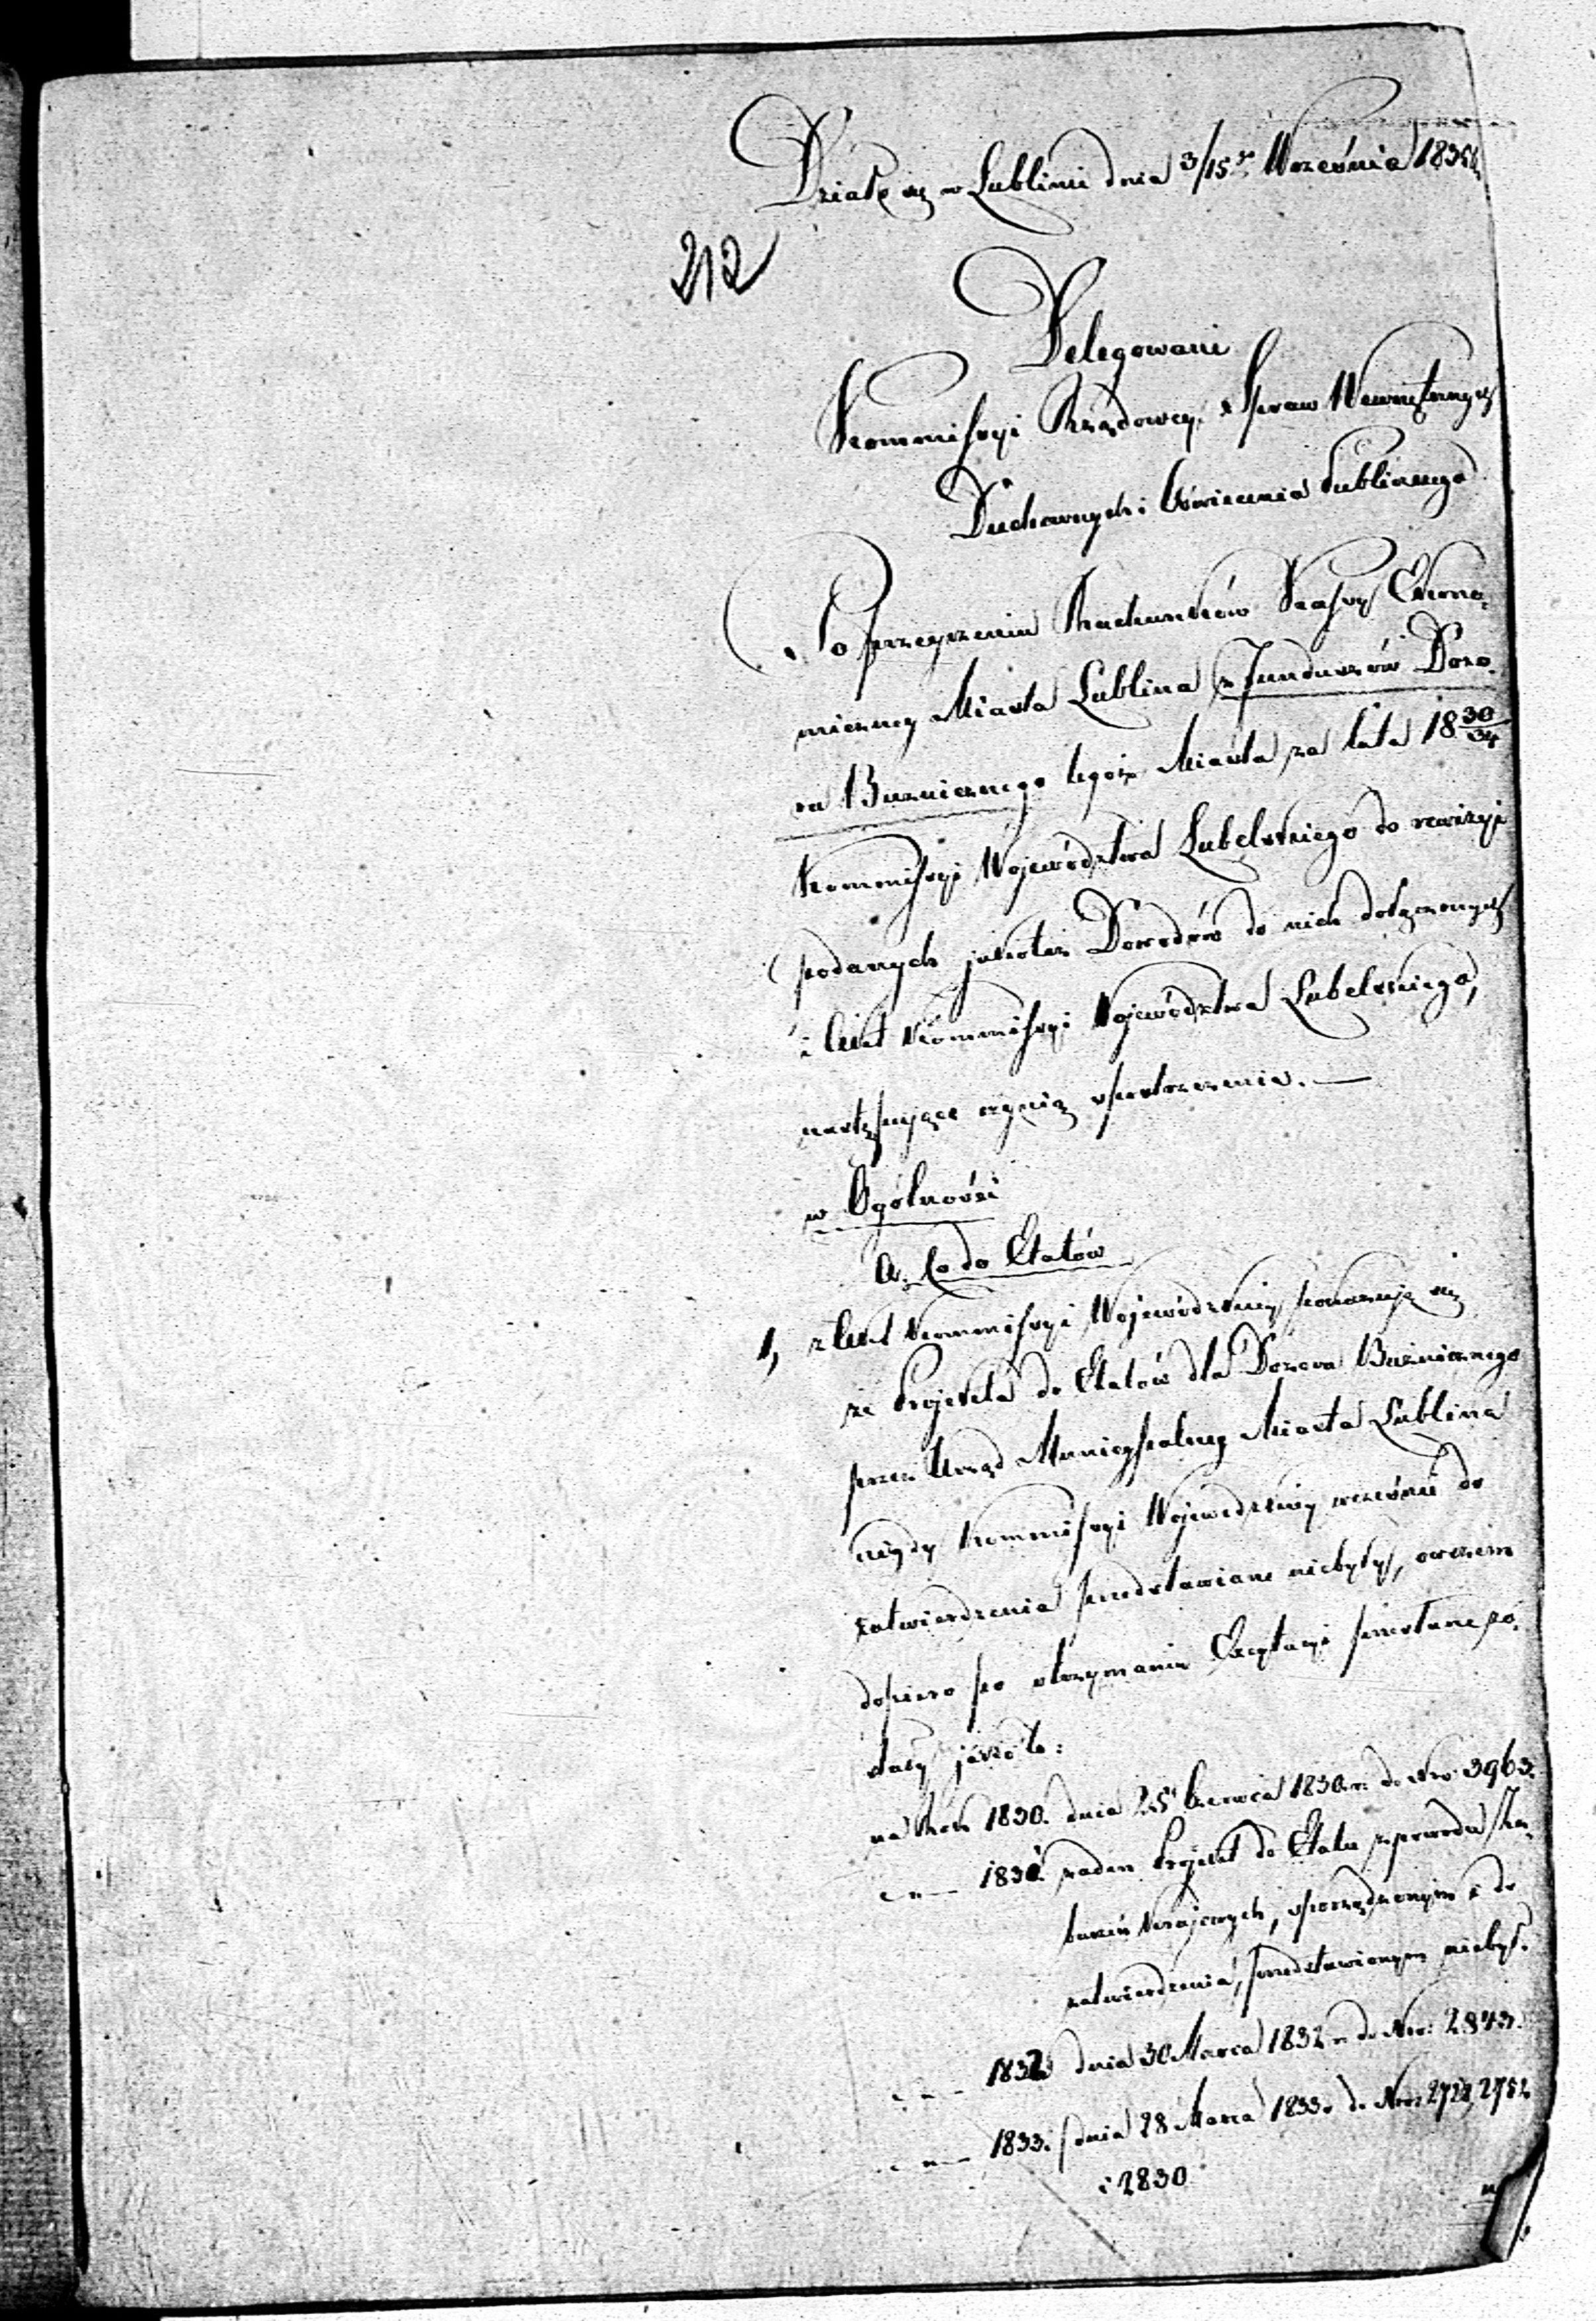 Działo się w Lublinie dnia 3/15go Września 1835 r.
212
Delegowani
Kommissyi Rządowey Spraw Wewnętrznych
Duchownych i Oświecenia Publicznego
Po przeyrzeniu Rachunków Kassy Ekono-
miczney Miasta Lublina z Funduszów Dozo-
ru Bużniczego tegoż Miasta za lata 18 30/34
Kommissyi Województwa Lubelskiego do rewizyi
podanych jakoteż Dowodów do nich dołączonych
i Akt Kommissyi Województwa Lubelskiego,
następujące czynią spostrzeżenia. —
w Ogólności
A. Co do Etatów
1, z Akt Kommissyi Wojewódzkiey pokazuje się
że Projekta do Etatów dla Dozoru Bużniczego
przez Urząd Municypalny Miasta Lublina
nigdy Kommissyi Wojewódzkiey wcześnie do
zatwierdzenia przedstawiane niebyły, owszem
dopiero po otrzymaniu Excytacyi przesłane zo-
stały jako to:
na Rok 1830. dnia 25 Czerwca 1830 r. do Nro 3963.
— „ — 1831 żaden Projekt do Etatu z powodu
krajowych, sporządzonym i do
zatwierdzenia, przedstawionym niebył.
— „ — 1832 dnia 30 Marca 1832 r. do Nro: 2843.
— „ — 1833. dnia 28 Marca 1833 r. do Nro: 2728, 2752
i 2830